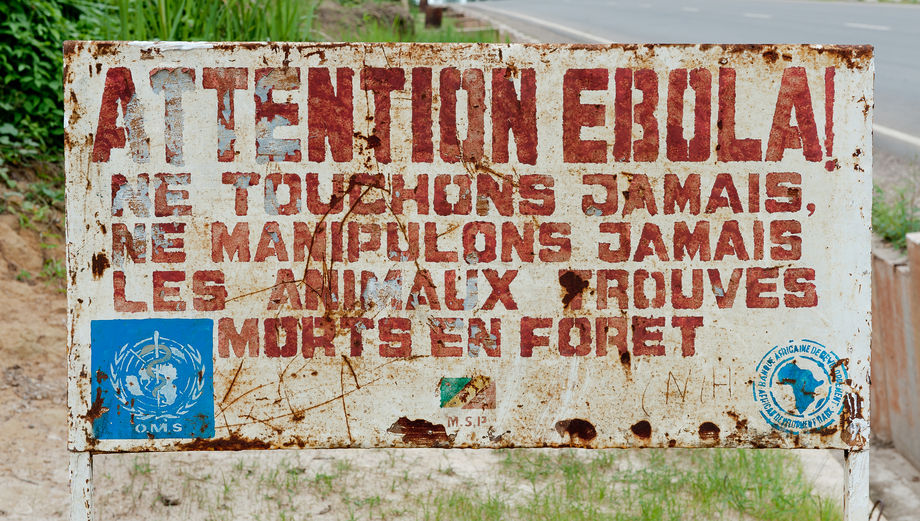 ATTENTION EBOLA!
NE TOUCHONS JAMAIS,
NE MANIPULONS JAMAIS
LES ANIMAUX TROUVES
MORTS EN FORET
O.M.S
M.S.P
BANQUE AFRICAINE DE DEVEL
AFRICAN DEVELOPMENT BANK